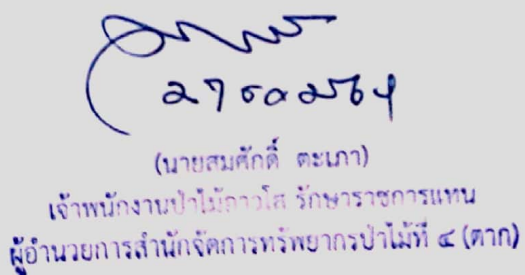 (นายสมศักดิ์ ตะเภา)
เจ้าพนักงานป่าไม้อาวุโส รักษาราชการแทน
ผู้อำนวยการสำนักจัดการทรัพยากรป่าไม้ที่ ๔ (ตาก)